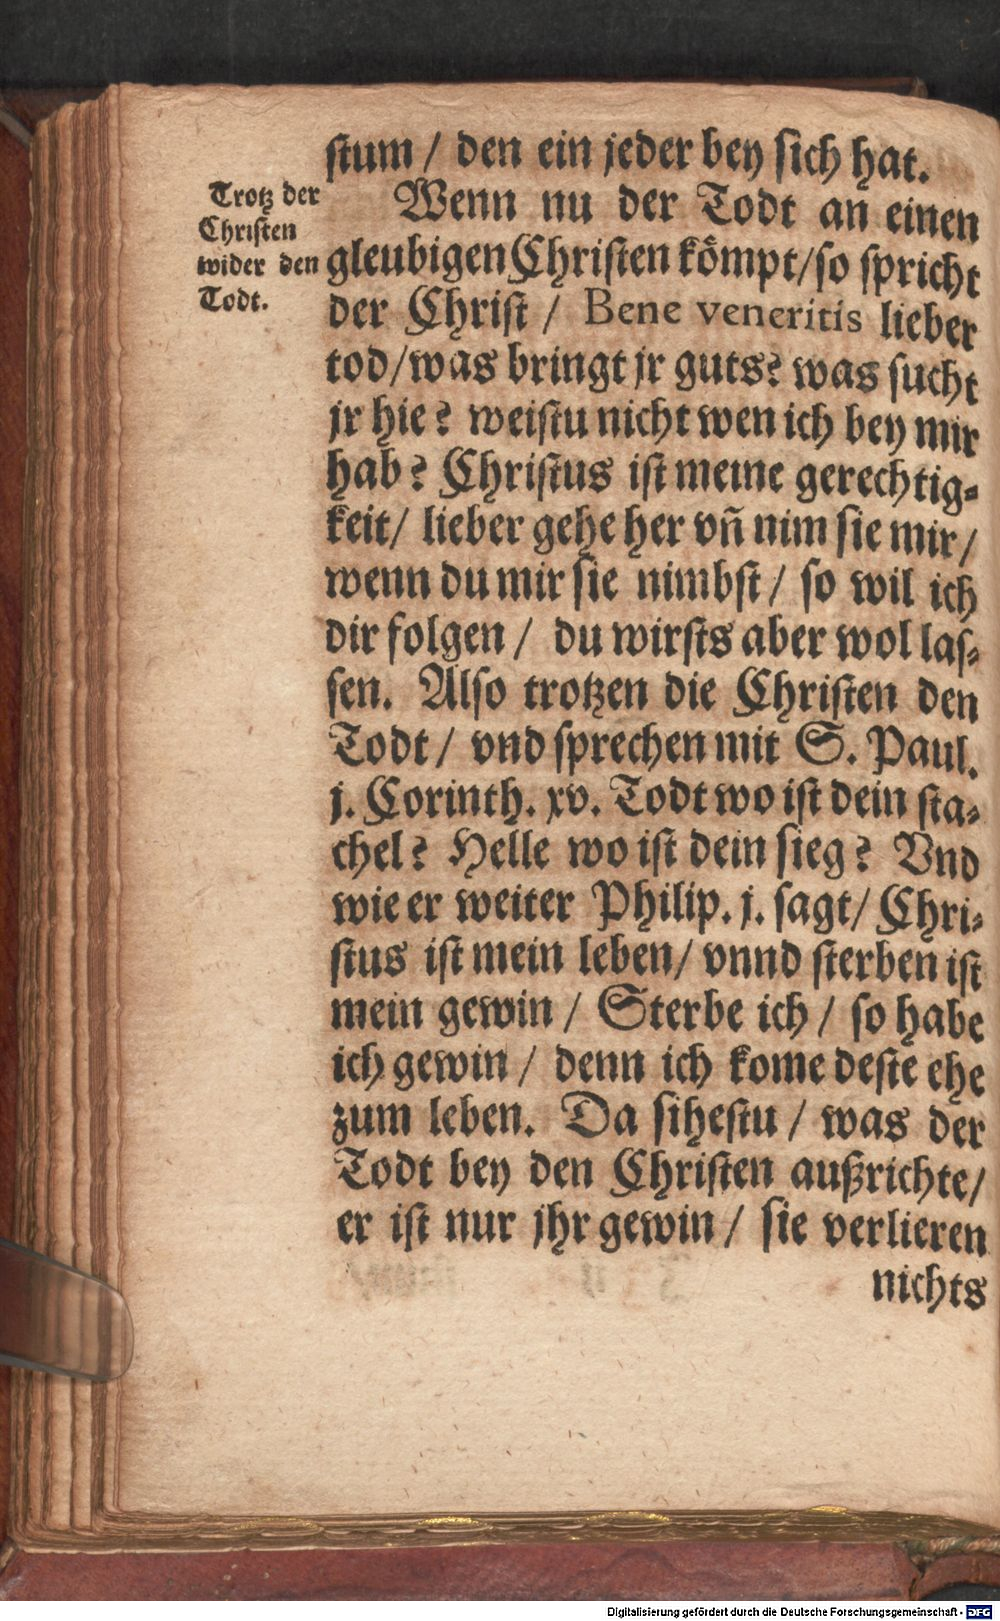 stum / den ein jeder bey sich hat.
Trotz der
Christen
wider den
Todt.
Wenn nu der Todt an einen
gleubigen Christen kömpt/so spricht
der Christ / Bene veneritis lieber
tod/was bringt jr guts? was sucht
jr hie? weistu nicht wen ich bey mir
hab? Christus ist meine gerechtig-
keit/ lieber gehe her vñ nim sie mir/
wenn du mir sie nimbst/ so wil ich
dir folgen/ du wirsts aber wol las-
sen. Also trotzen die Christen den
Todt/ vnd sprechen mit S. Paul.
j. Corinth. xv. Todt wo ist dein sta-
chel? Helle wo ist dein sieg? Vnd
wie er weiter Philip. j. sagt/ Chri-
stus ist mein leben/ vnnd sterben ist
mein gewin / Sterbe ich / so habe
ich gewin / denn ich kome deste ehe
zum leben. Da sihestu / was der
Todt bey den Christen außrichte/
er ist nur jhr gewin/ sie verlieren
nichts
Digitalisierung gefördert durch die Deutsche Forschungsgemeinschaft - DFG